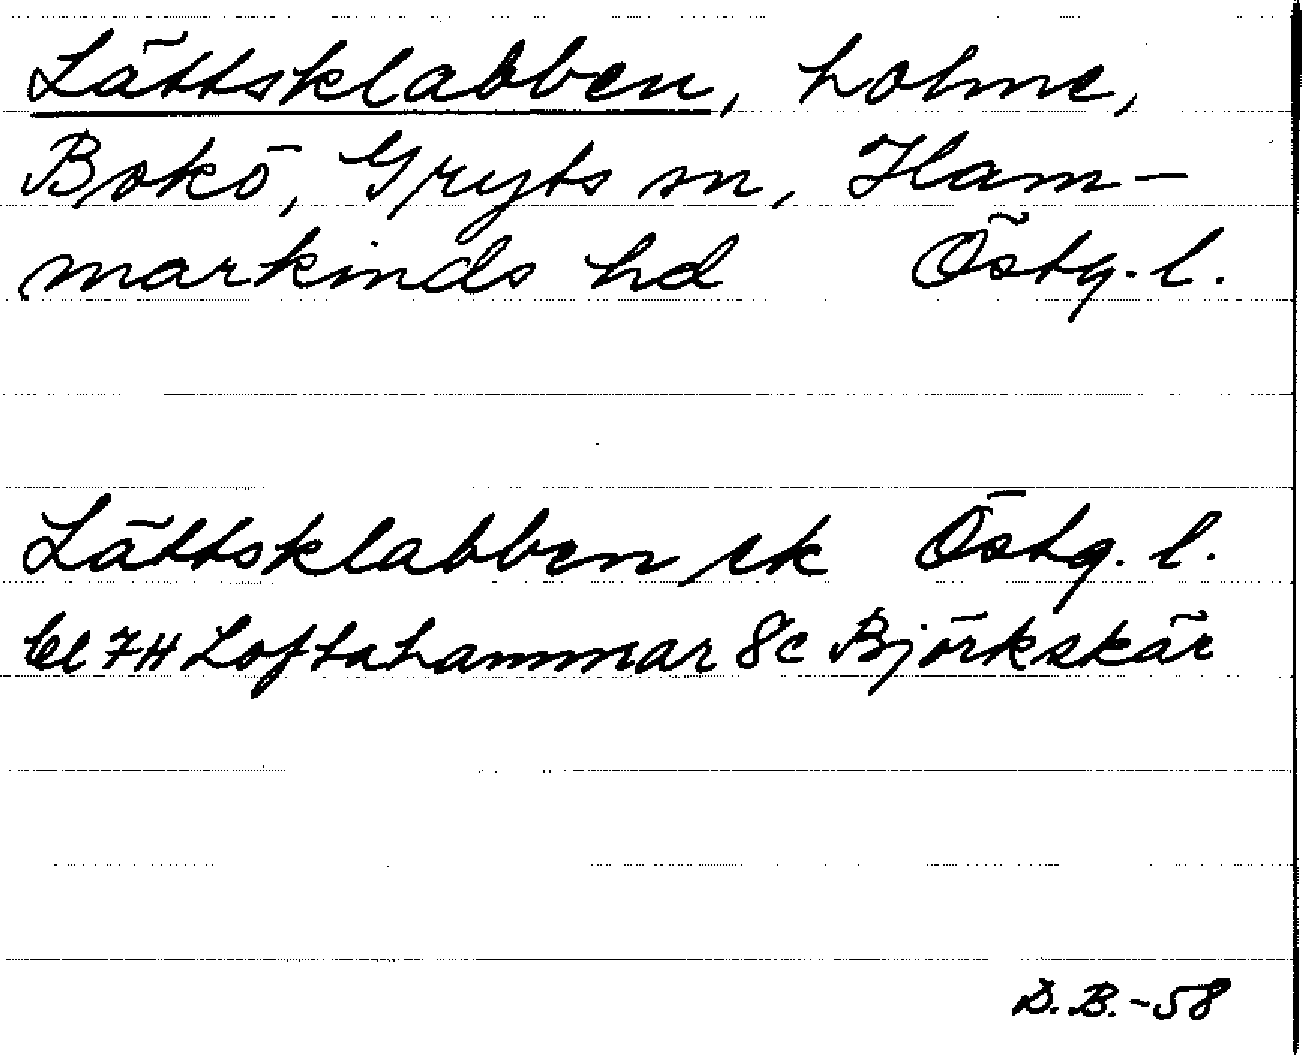 Lättsklabben, holme,
Bokö, Gryts sn, Ham-
markinds hd Östg. l.
Lättsklabben ek Östg. l.
bl 7H Loftahammar 8c Björkskär
D.B.-58